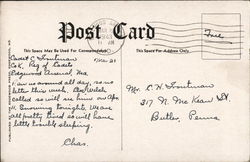 Post Card
This Space May Be Used For Correspondence
This Space For Address Only
Free
Cadet C Troutman
Co K, Reg of Cadets
Edgewood Arsenal, Md.
I am on around all day, so no
letter this week.
called so will see him on
evening tonight. Was
all pretty tired so will have
little trouble sleeping.
Chas.
Mr. C. H. Troutman
317 N. McKean St.
Butler, Penna